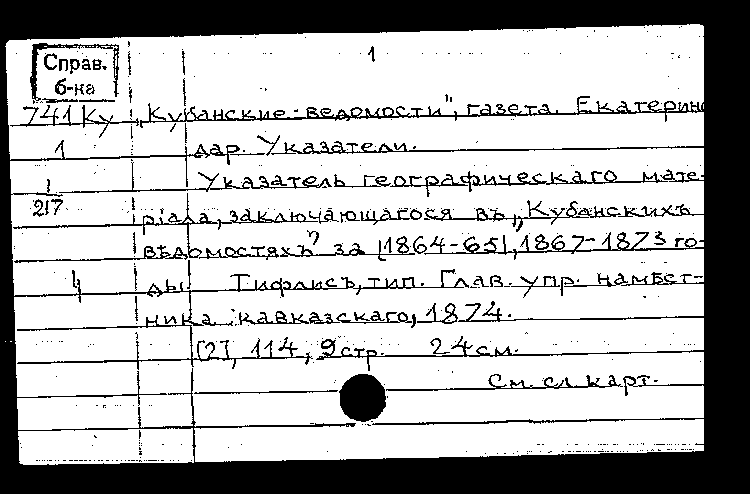 1
Справ.
б-ка
741 Ку „Кубанские ведомости", газета. Екатерино
1 дар. Указатели.
Указатель географическаго мате-
1/217
рiала, заключающагося въ „Кубанскихъ
вѣдомостяхъ" за [1864-65], 1867-1873 го-
4 ды. Тифлисъ, тип. Глав. упр. намѣст-
ника кавказскаго, 1874.
[2], 114, 9 стр. 24 см.
См. сл. карт.